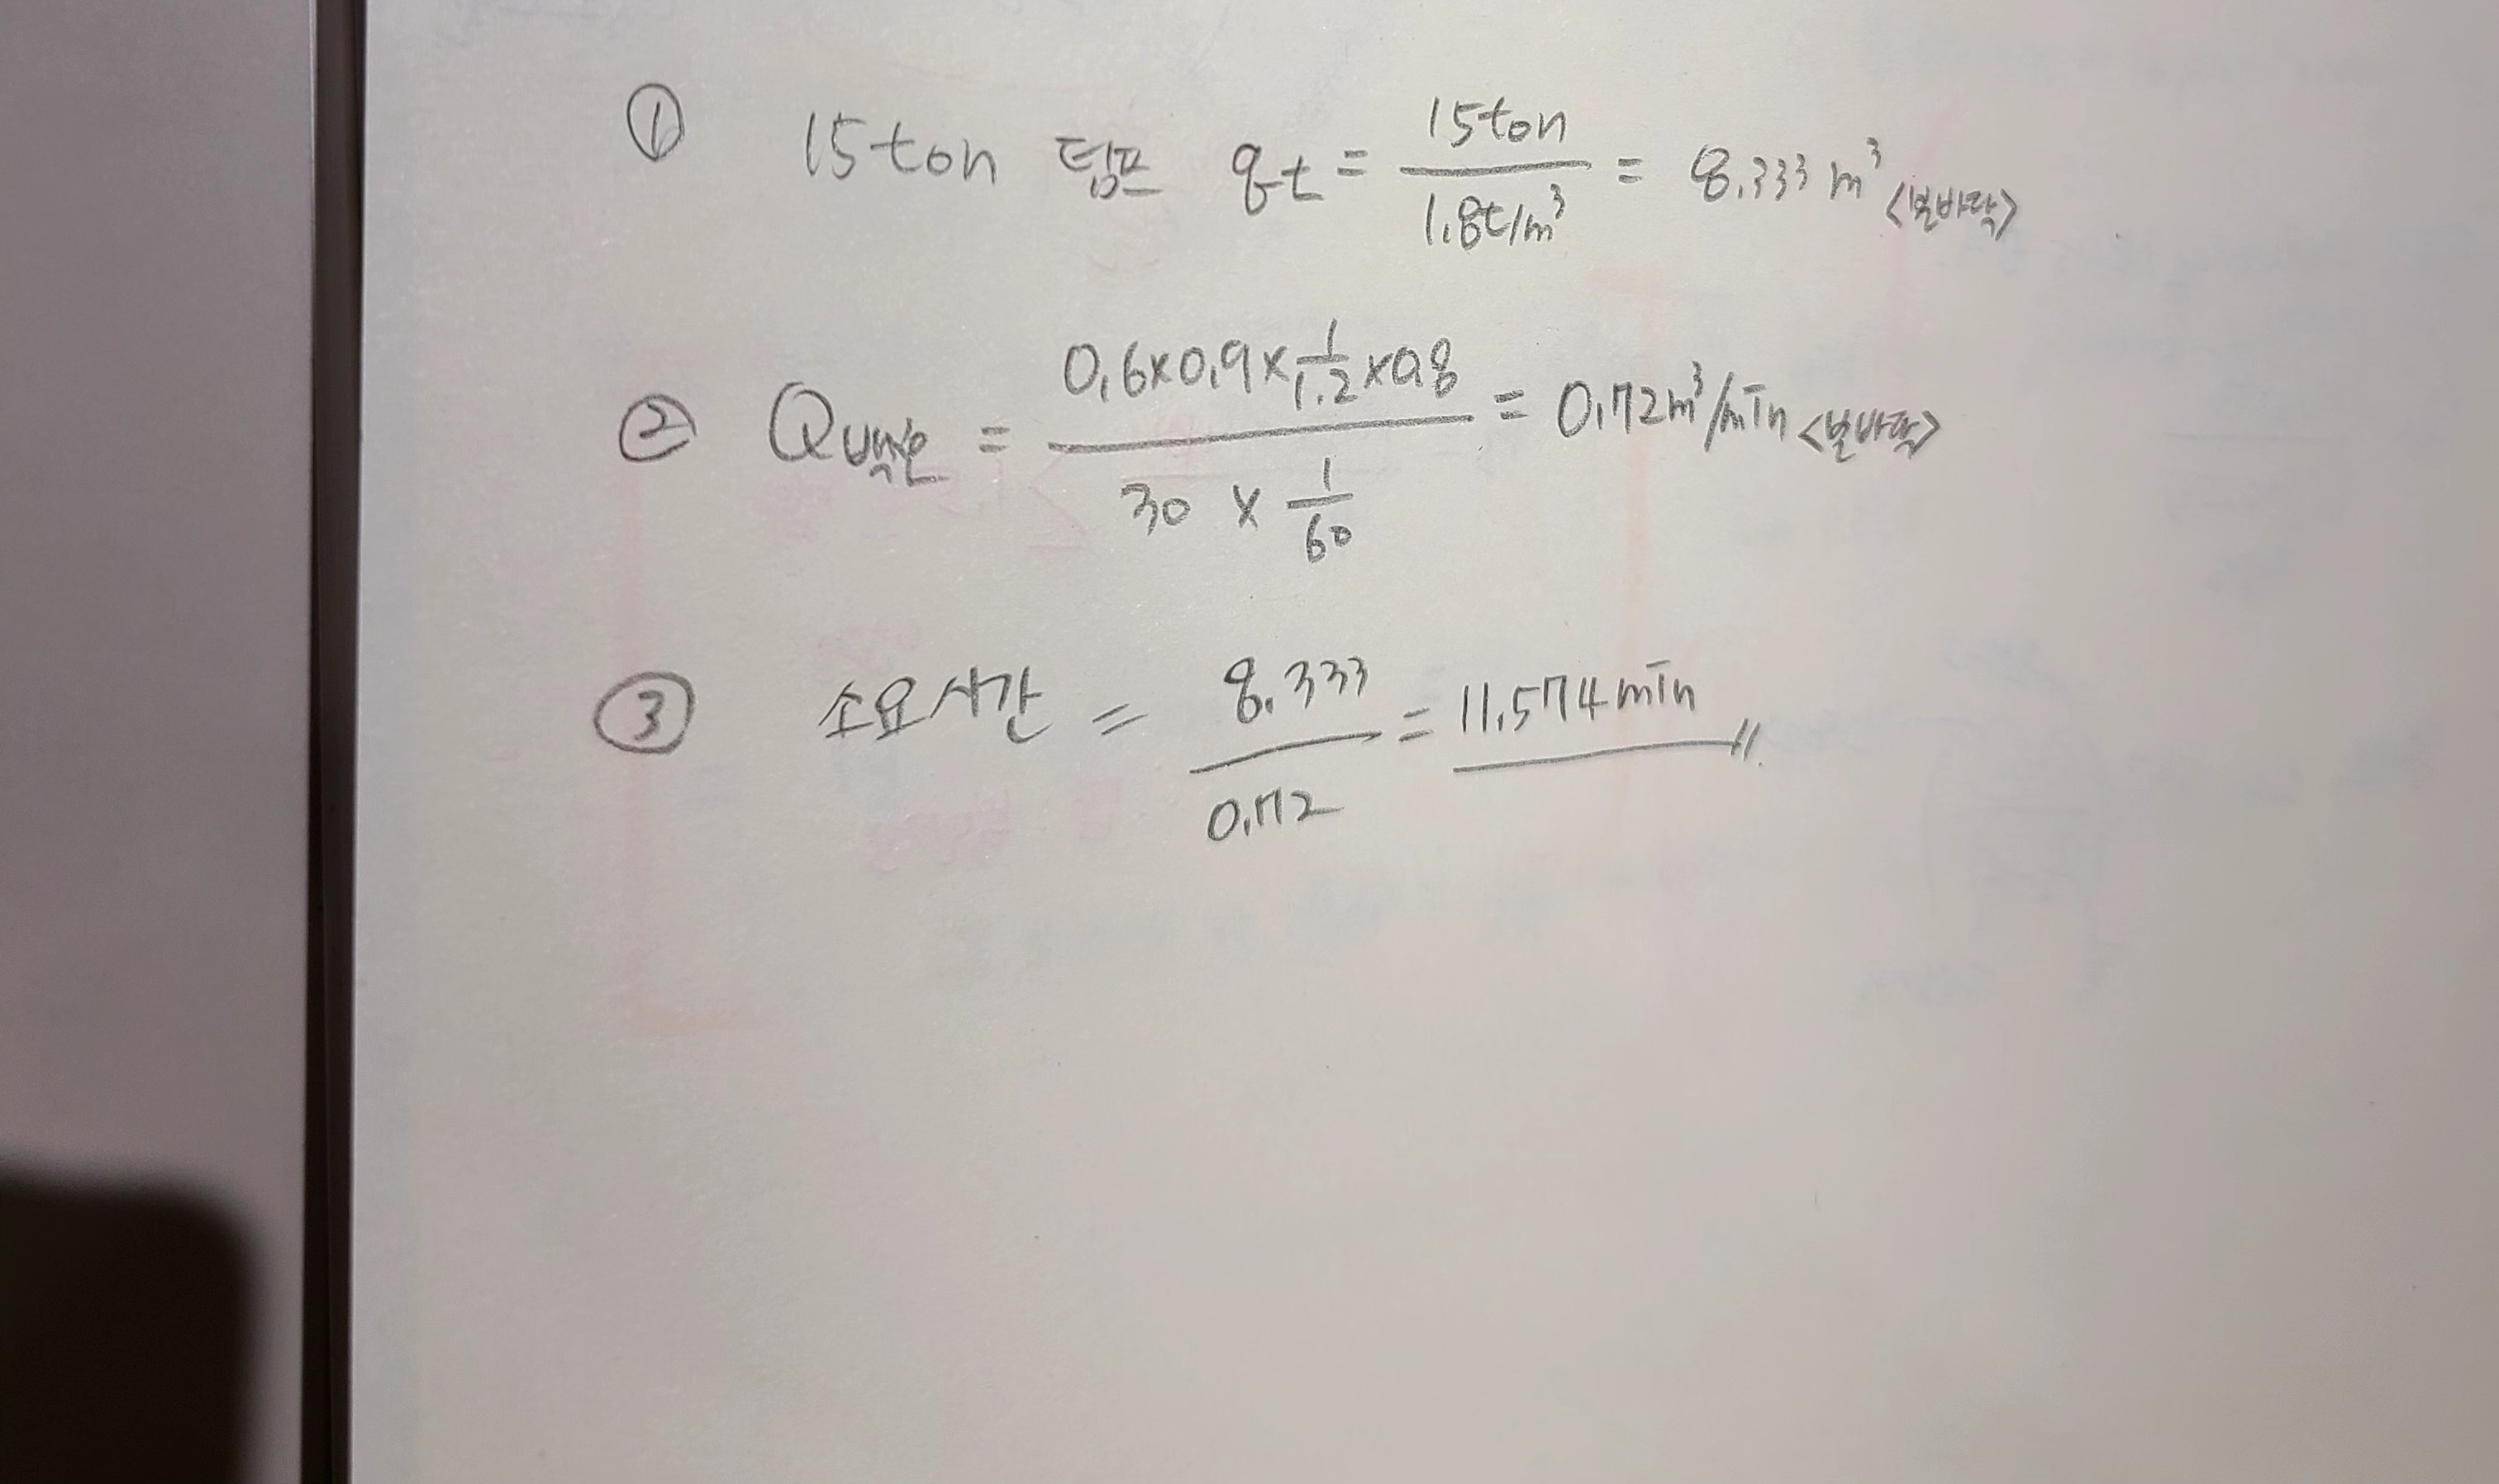 ① 15ton 덤프 qt = 15ton / 1.8t/m³ = 8.333 m³ <본바닥>
② Q백호 = 0.6×0.9×1/1.2×0.8 / 30 × 1/60 = 0.72m³/min <본바닥>
③ 소요시간 = 8.333 / 0.72 = 11.574min